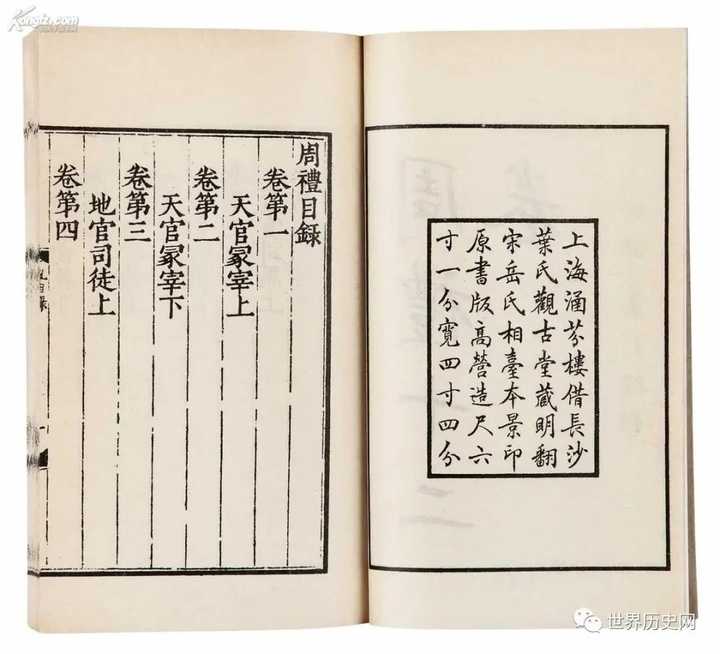 上海涵芬樓借長沙
葉氏觀古堂藏明翻
宋岳氏相臺本景印
原書版高營造尺六
寸一分寬四寸四分
周禮目錄
卷第一
天官冢宰上
卷第二
天官冢宰下
卷第三
地官司徒上
卷第四
世界历史网